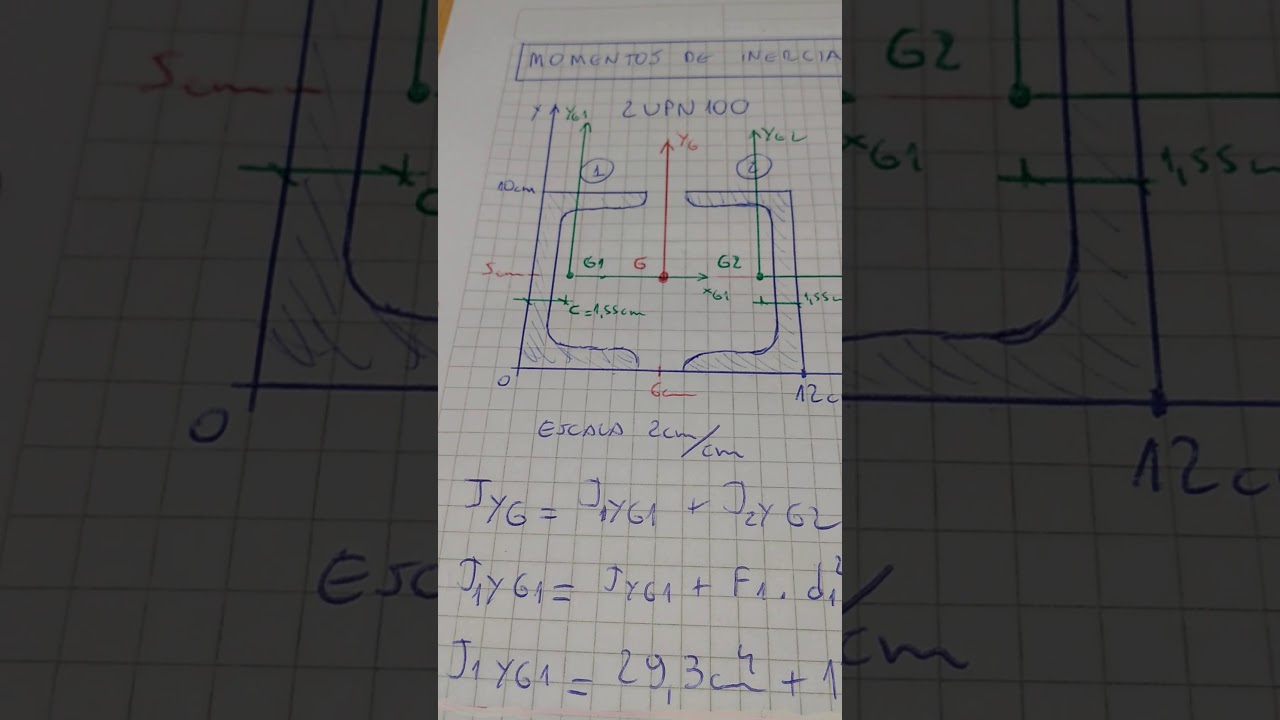 MOMENTOS DE INERCIA
2 UPN 100
Y YG1 YG YG2
1 2
10cm
5cm G1 G G2
xG1
C=1,55cm 1,55cm
0 6cm 12c
ESCALA 2cm/cm
JYG = J1YG1 + J2YG2
J1YG1 = JYG1 + F1 . d1²
J1YG1 = 29,3cm⁴ + 1